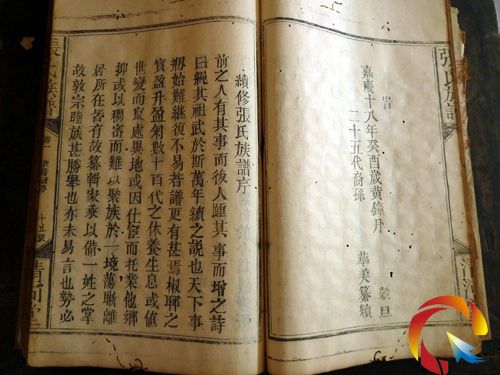 張氏族譜
旹
嘉慶十八年癸酉歲黃鐘月
穀旦
二十五代裔孫
華美纂續
清河
續修張氏族譜序
前之人有其事而後人踵其事而增之詩
曰繩其祖武於斯萬年續之說也天下事
剏始難繼復不易若譜更有甚焉椒聊之
實盈升盈匊數十百代之休養生息或值
世變而竄處異地或因仕宦而托業他鄉
抑或以稠密而難以聚族於一境蕩析離
居所在皆有故纂輯家乘以備一姓之掌
故敦宗睦族甚勝舉也亦未易言也勢必
張氏族譜
清河堂